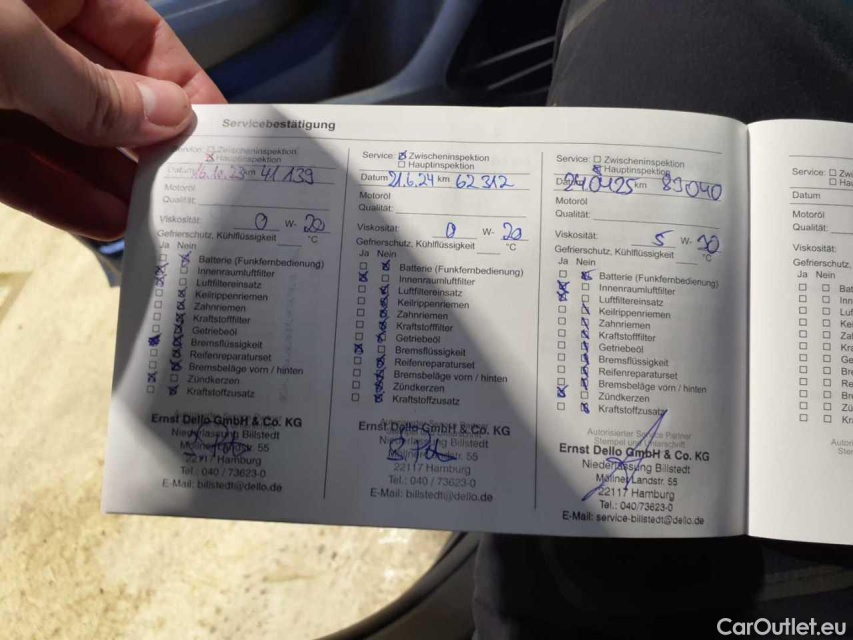 Servicebestätigung
Service: Zwischeninspektion
Hauptinspektion
Datum 16.10.23 km 41 139
Motoröl
Qualität:
Viskosität: 0 W- 20
Gefrierschutz, Kühlflüssigkeit °C
Ja Nein
Batterie (Funkfernbedienung)
Innenraumluftfilter
Luftfiltereinsatz
Keilrippenriemen
Zahnriemen
Kraftstofffilter
Getriebeöl
Bremsflüssigkeit
Reifenreparaturset
Bremsbeläge vorn / hinten
Zündkerzen
Kraftstoffzusatz
Ernst Dello GmbH & Co. KG
Niederlassung Billstedt
Möllner Landstr. 55
22117 Hamburg
Tel.: 040 / 73623-0
E-Mail: billstedt@dello.de
Service: Zwischeninspektion
Hauptinspektion
Datum 21.6.24 km 62 312
Motoröl
Qualität:
Viskosität: 0 W- 20
Gefrierschutz, Kühlflüssigkeit °C
Ja Nein
Batterie (Funkfernbedienung)
Innenraumluftfilter
Luftfiltereinsatz
Keilrippenriemen
Zahnriemen
Kraftstofffilter
Getriebeöl
Bremsflüssigkeit
Reifenreparaturset
Bremsbeläge vorn / hinten
Zündkerzen
Kraftstoffzusatz
Ernst Dello GmbH & Co. KG
Niederlassung Billstedt
Möllner Landstr. 55
22117 Hamburg
Tel.: 040 / 73623-0
E-Mail: billstedt@dello.de
Service: Zwischeninspektion
Hauptinspektion
Datum 240125 km 89040
Motoröl
Qualität:
Viskosität: 5 W- 30
Gefrierschutz, Kühlflüssigkeit °C
Ja Nein
Batterie (Funkfernbedienung)
Innenraumluftfilter
Luftfiltereinsatz
Keilrippenriemen
Zahnriemen
Kraftstofffilter
Getriebeöl
Bremsflüssigkeit
Reifenreparaturset
Bremsbeläge vorn / hinten
Zündkerzen
Kraftstoffzusatz
Autorisierter Service Partner
Stempel und Unterschrift
Ernst Dello GmbH & Co. KG
Niederlassung Billstedt
Möllner Landstr. 55
22117 Hamburg
Tel.: 040/73623-0
E-Mail: service-billstedt@dello.de
Service: Zwi
Hau
Datum
Motoröl
Qualität:
Viskosität:
Gefrierschutz,
Ja Nein
Bat
Inn
Luf
Kei
Zah
Kra
Get
Bre
Rei
Bre
Zü
Kra
CarOutlet.eu